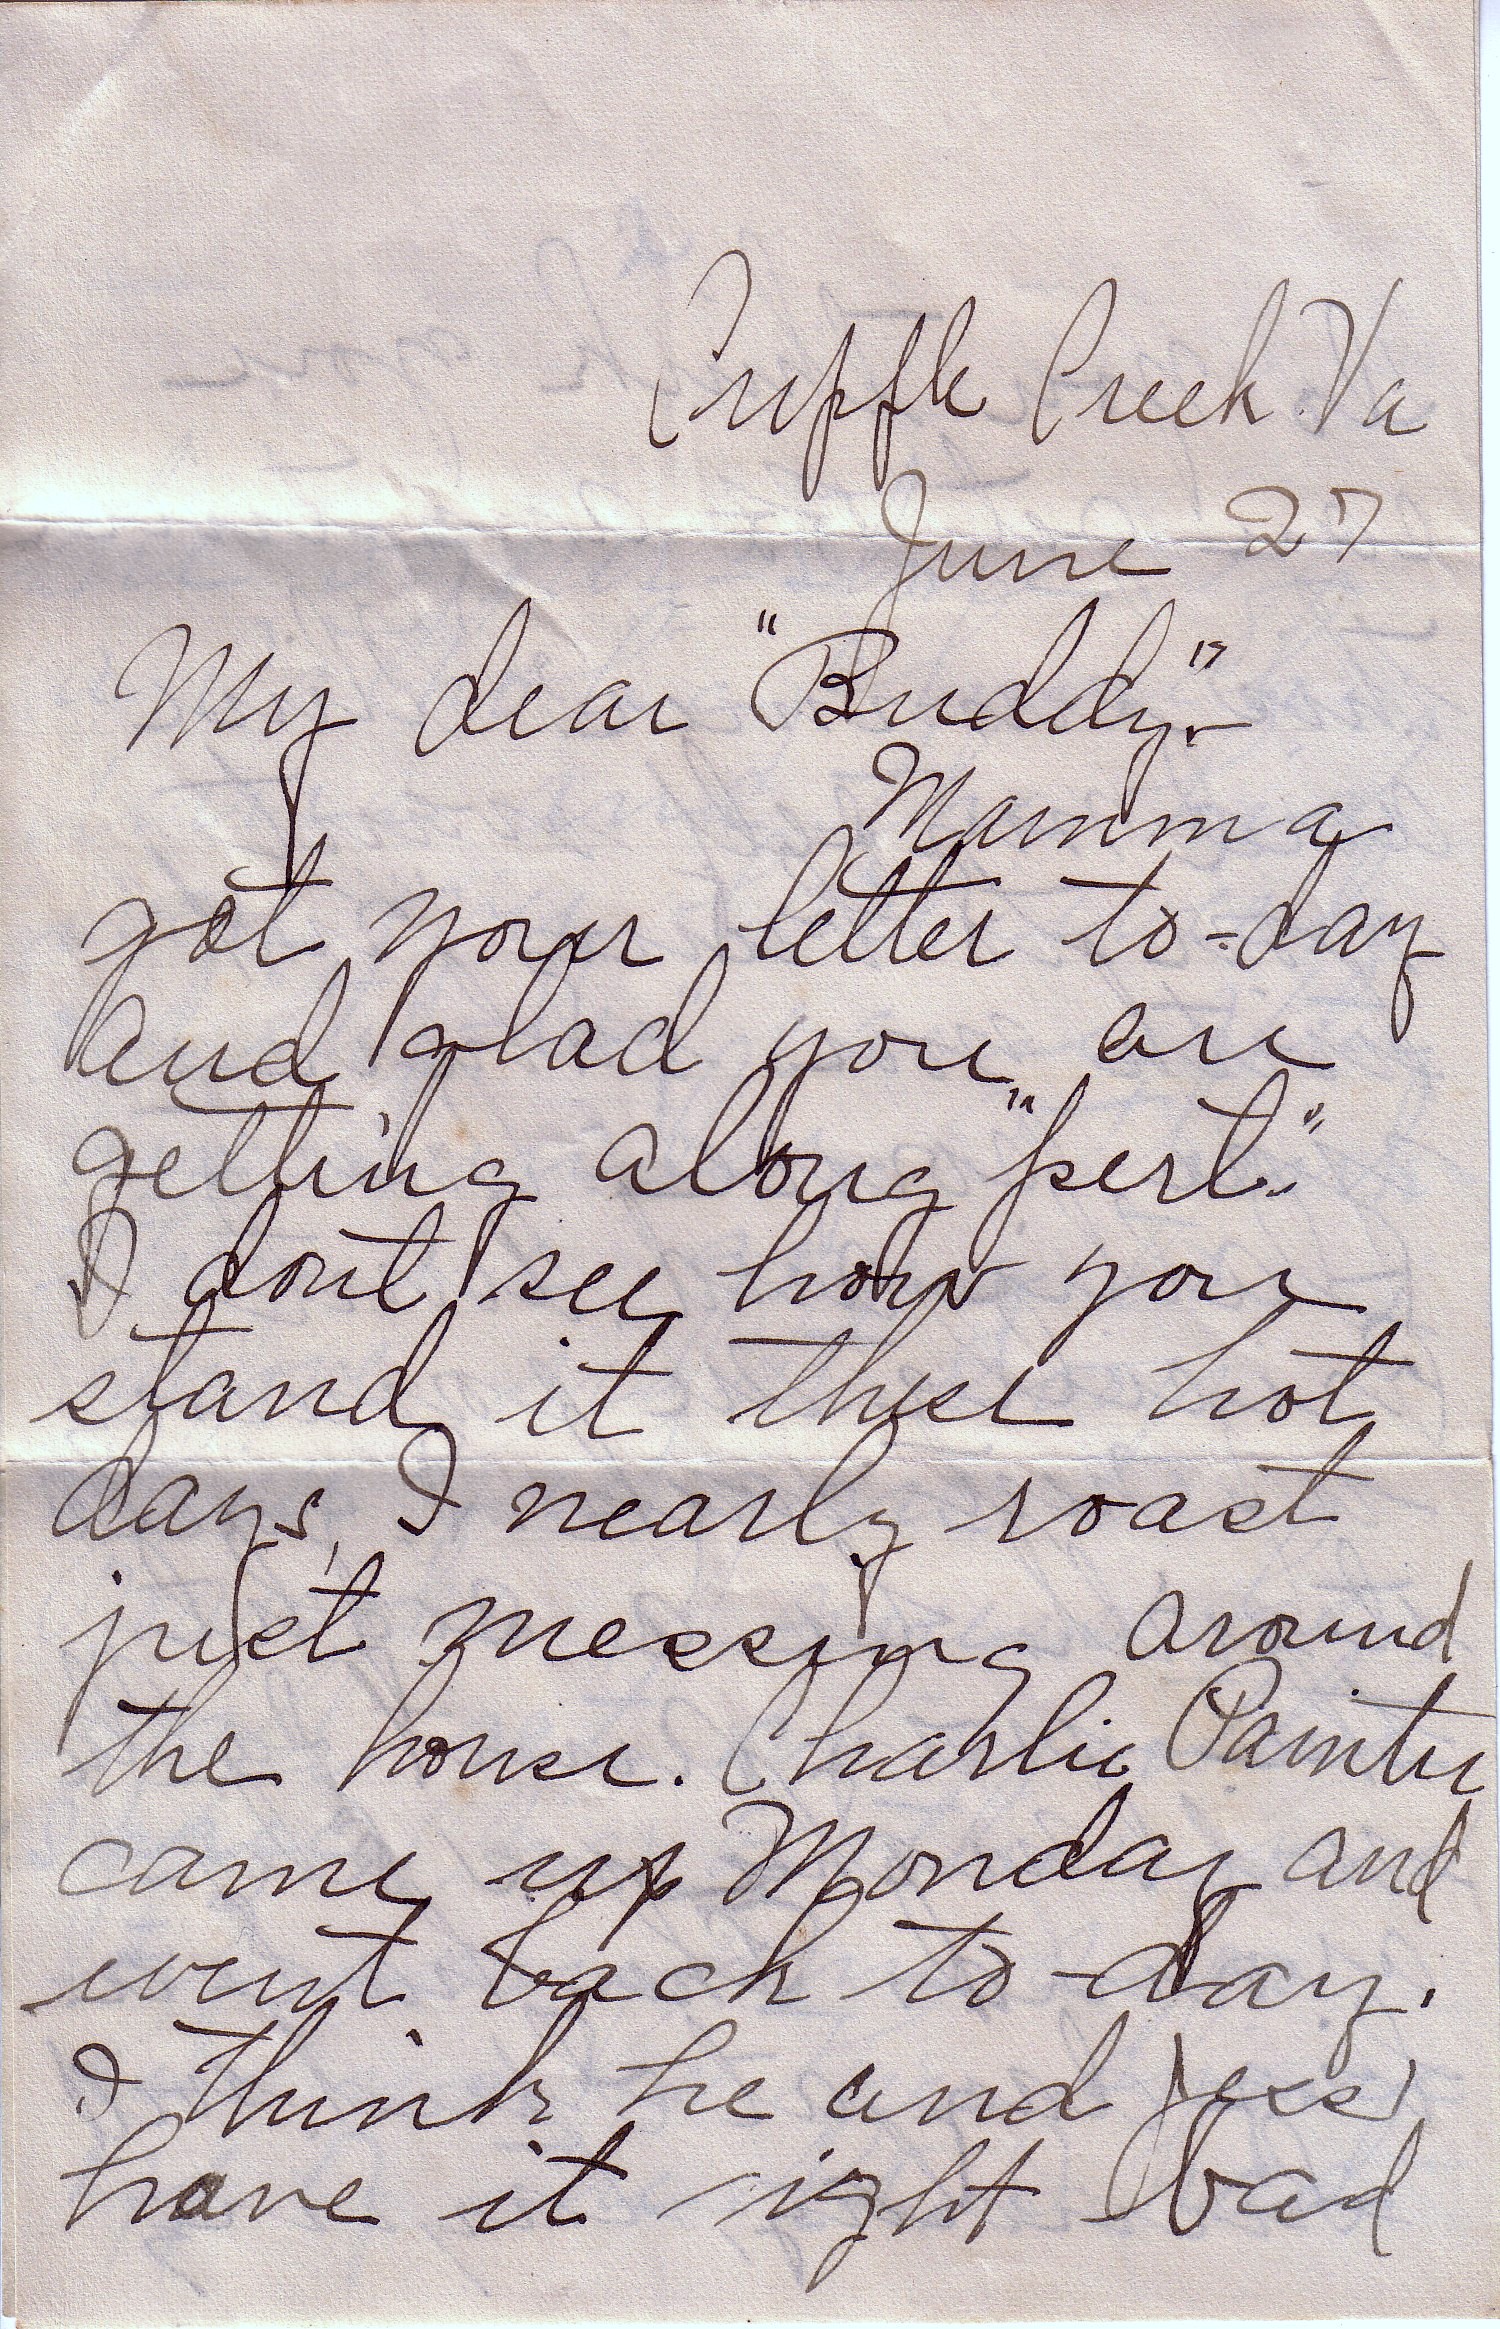 Cripple Creek Va
June 27
My dear "Buddy".
Mamma
got your letter to-day
and glad you are
getting along "pert."
I dont see how you
stand it these hot
days, I nearly roast
just messing around
the house. Charlie Painter
came up Monday and
went back to-day.
I think he and Jess
have it right bad